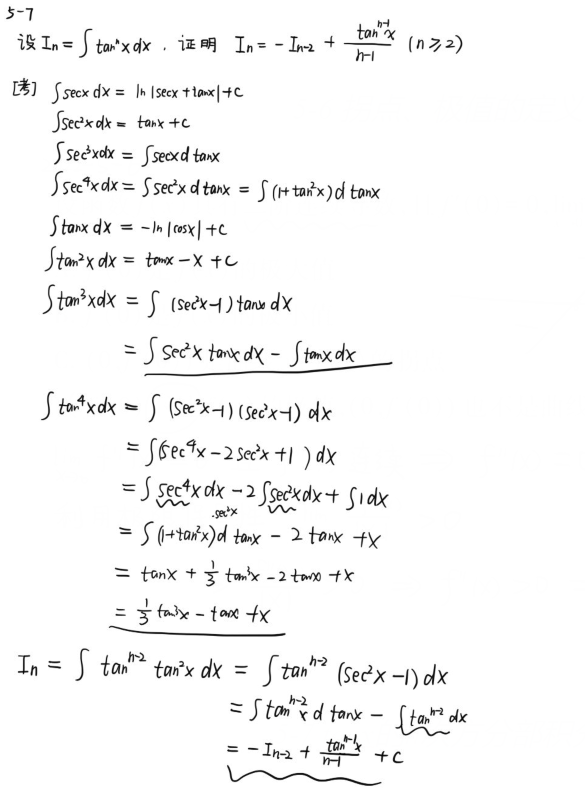 5-7
设 Iₙ = ∫ tanⁿx dx . 证明 Iₙ = -Iₙ₋₂ + tanⁿ⁻¹x / (n-1) (n ≥ 2)
∫ secx dx = ln |secx + tanx| + c
∫ sec²x dx = tanx + c
∫ sec³x dx = ∫ secx d tanx
∫ sec⁴x dx = ∫ sec²x d tanx = ∫ (1+tan²x) d tanx
∫ tanx dx = -ln |cosx| + c
∫ tan²x dx = tanx - x + c
∫ tan³x dx = ∫ (sec²x-1) tanx dx
= ∫ sec²x tanx dx - ∫ tanx dx
∫ tan⁴x dx = ∫ (sec²x-1)(sec²x-1) dx
= ∫ (sec⁴x - 2sec²x + 1) dx
= ∫ sec⁴x dx - 2∫ sec²x dx + ∫ 1 dx
·sec²x
= ∫ (1+tan²x) d tanx - 2 tanx + x
= tanx + 1/3 tan³x - 2 tanx + x
= 1/3 tan³x - tanx + x
Iₙ = ∫ tanⁿ⁻² tan²x dx = ∫ tanⁿ⁻² (sec²x - 1) dx
= ∫ tanⁿ⁻²x d tanx - ∫ tanⁿ⁻² dx
= -Iₙ₋₂ + tanⁿ⁻¹x / (n-1) + c